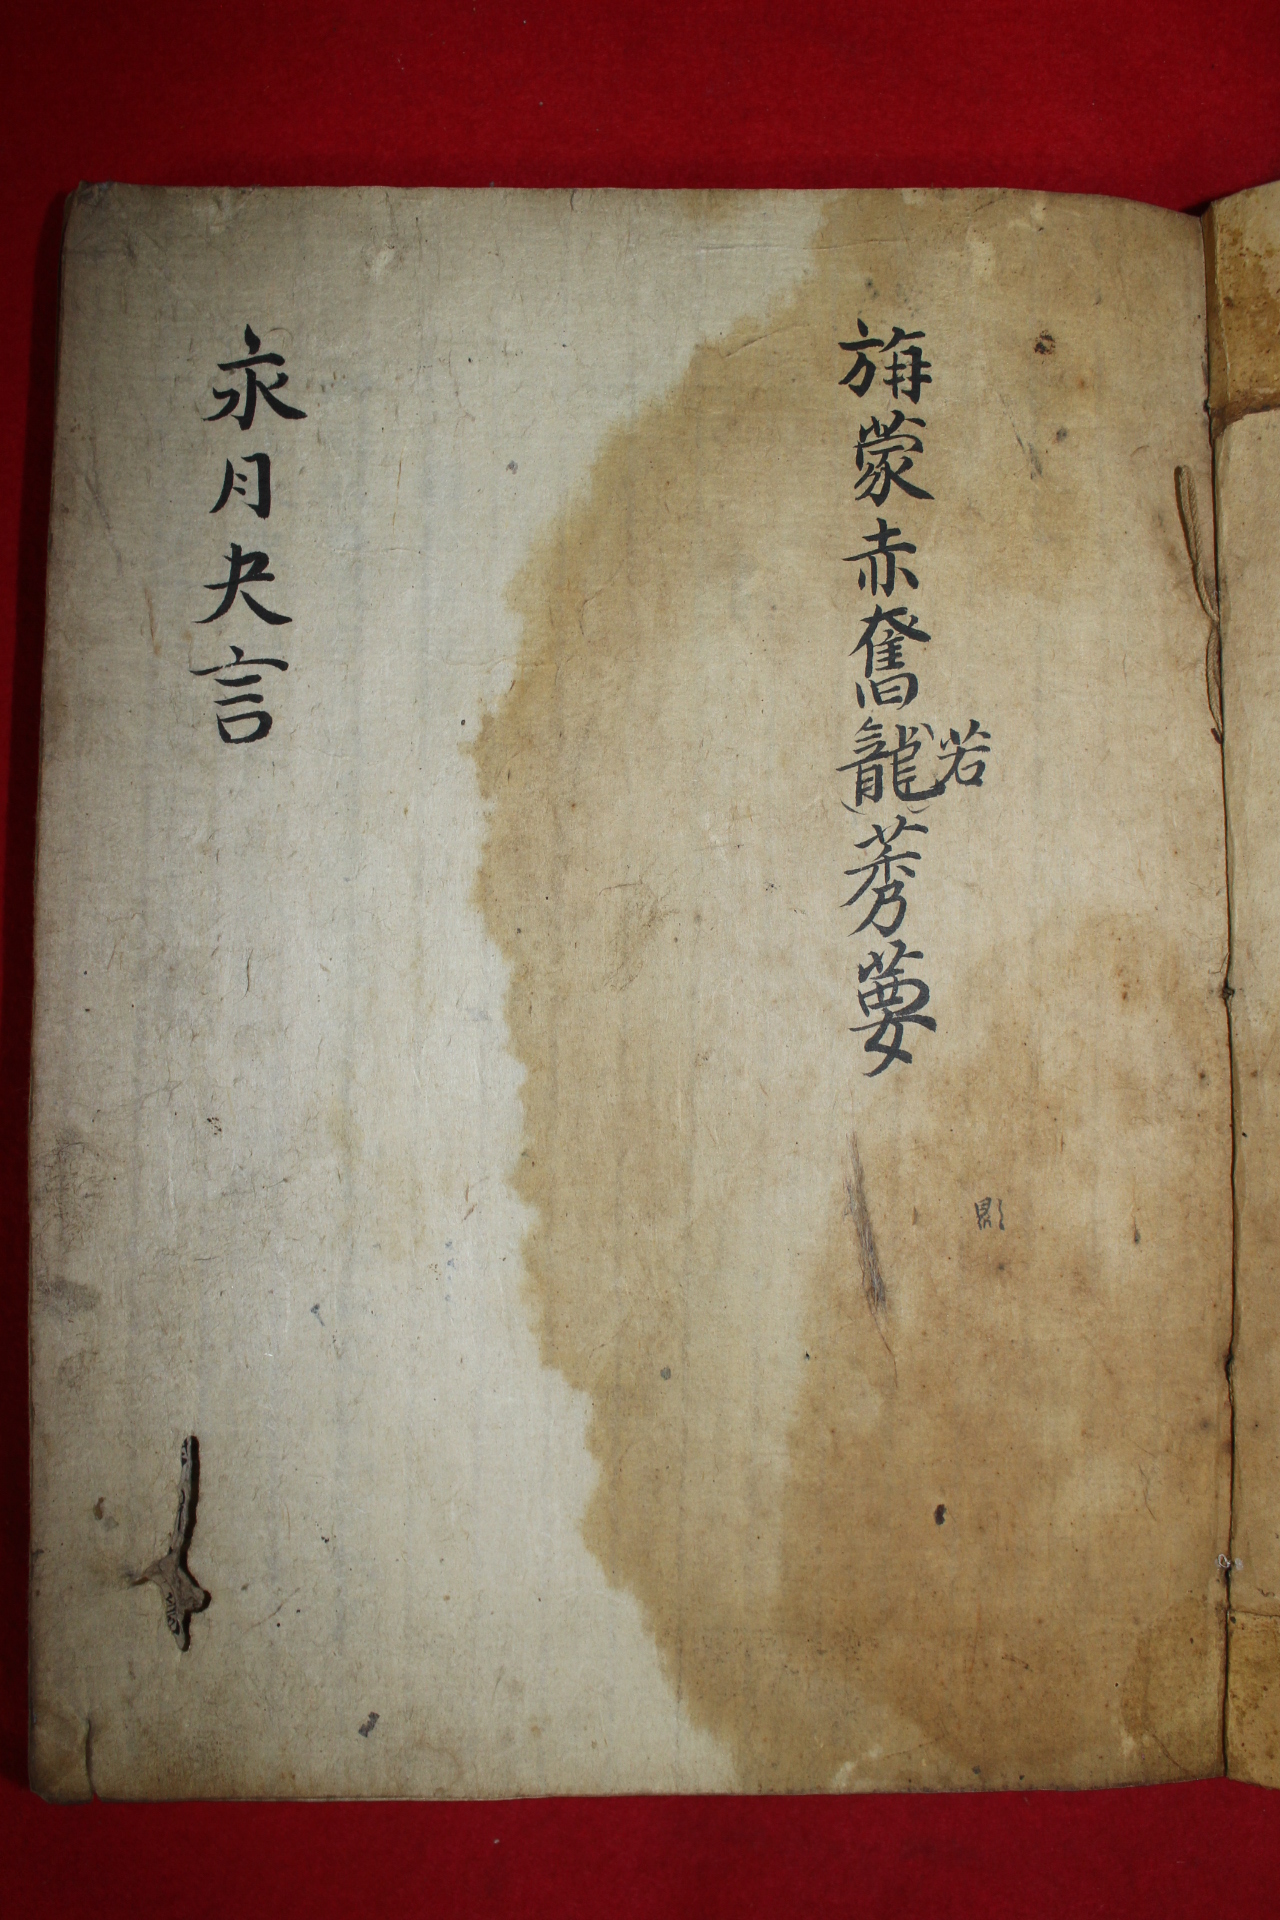 旃蒙赤奮龍莠葽
若
永月夬言